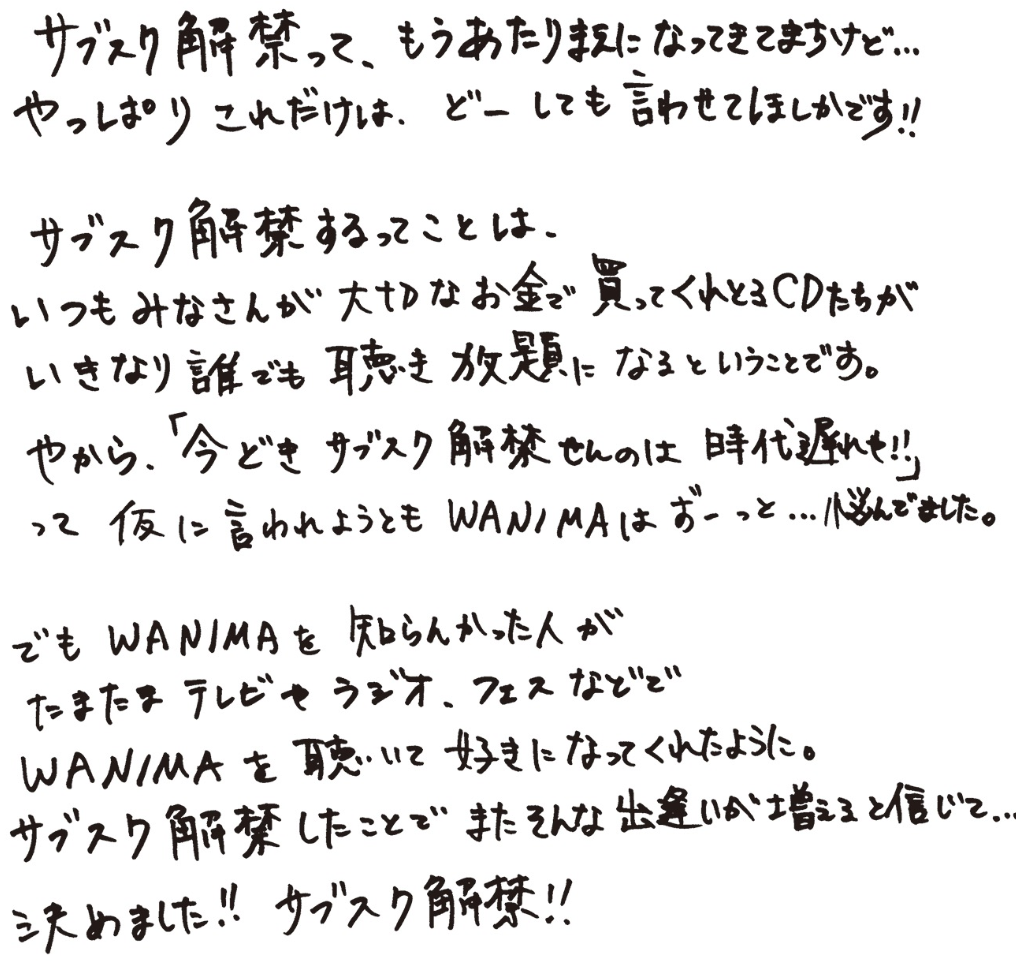 サブスク解禁って、もうあたりまえになってきてますけど…
やっぱりこれだけは、どーしても言わせてほしかです!!
サブスク解禁するってことは、
いつもみなさんが大切なお金で買ってくれとるCDたちが
いきなり誰でも聴き放題になるということです。
やから、「今どきサブスク解禁せんのは時代遅れや!!」
って仮に言われようともWANIMAはずーっと…悩んでました。
でもWANIMAを知らんかった人が
たまたまテレビやラジオ、フェスなどで
WANIMAを聴いて好きになってくれたように。
サブスク解禁したことでまたそんな出逢いが増えると信じて…
決めました!! サブスク解禁!!